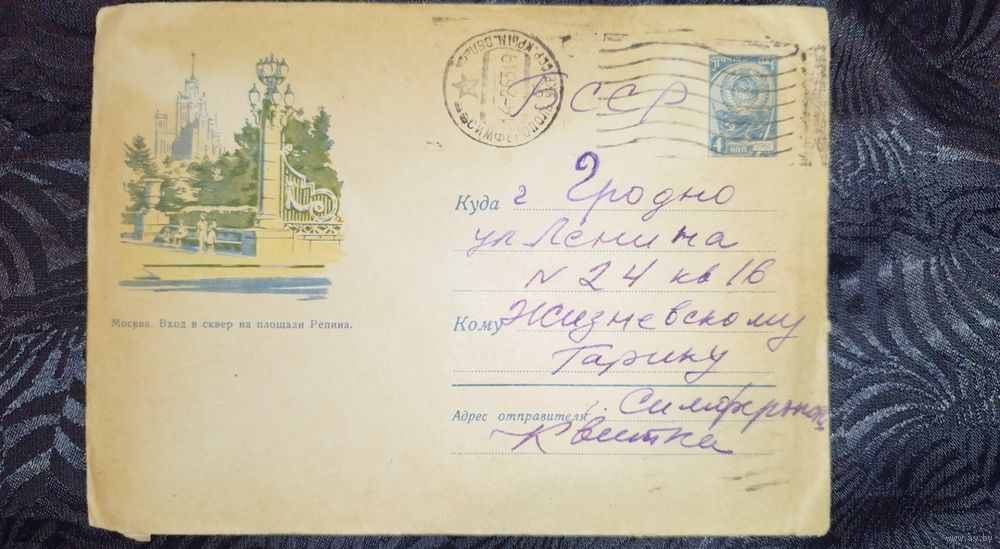 БССР
ПОЧТА СССР
4 КОП. 1961
Куда г Гродно
ул Ленина
N 24 кв 16
Кому Жизневскому
Гарику
Москва. Вход в сквер на площади Репина.
Адрес отправителя г. Симферополь
Квитка
www.ay.by